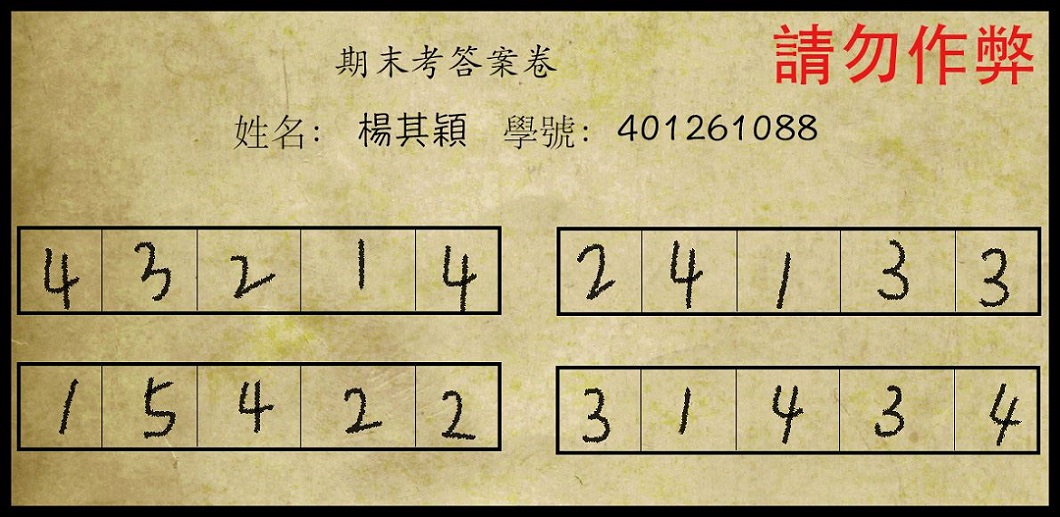 請勿作弊
期末考答案卷
姓名: 楊其穎 學號: 401261088
4 3 2 1 4 2 4 1 3 3
1 5 4 2 2 3 1 4 3 4